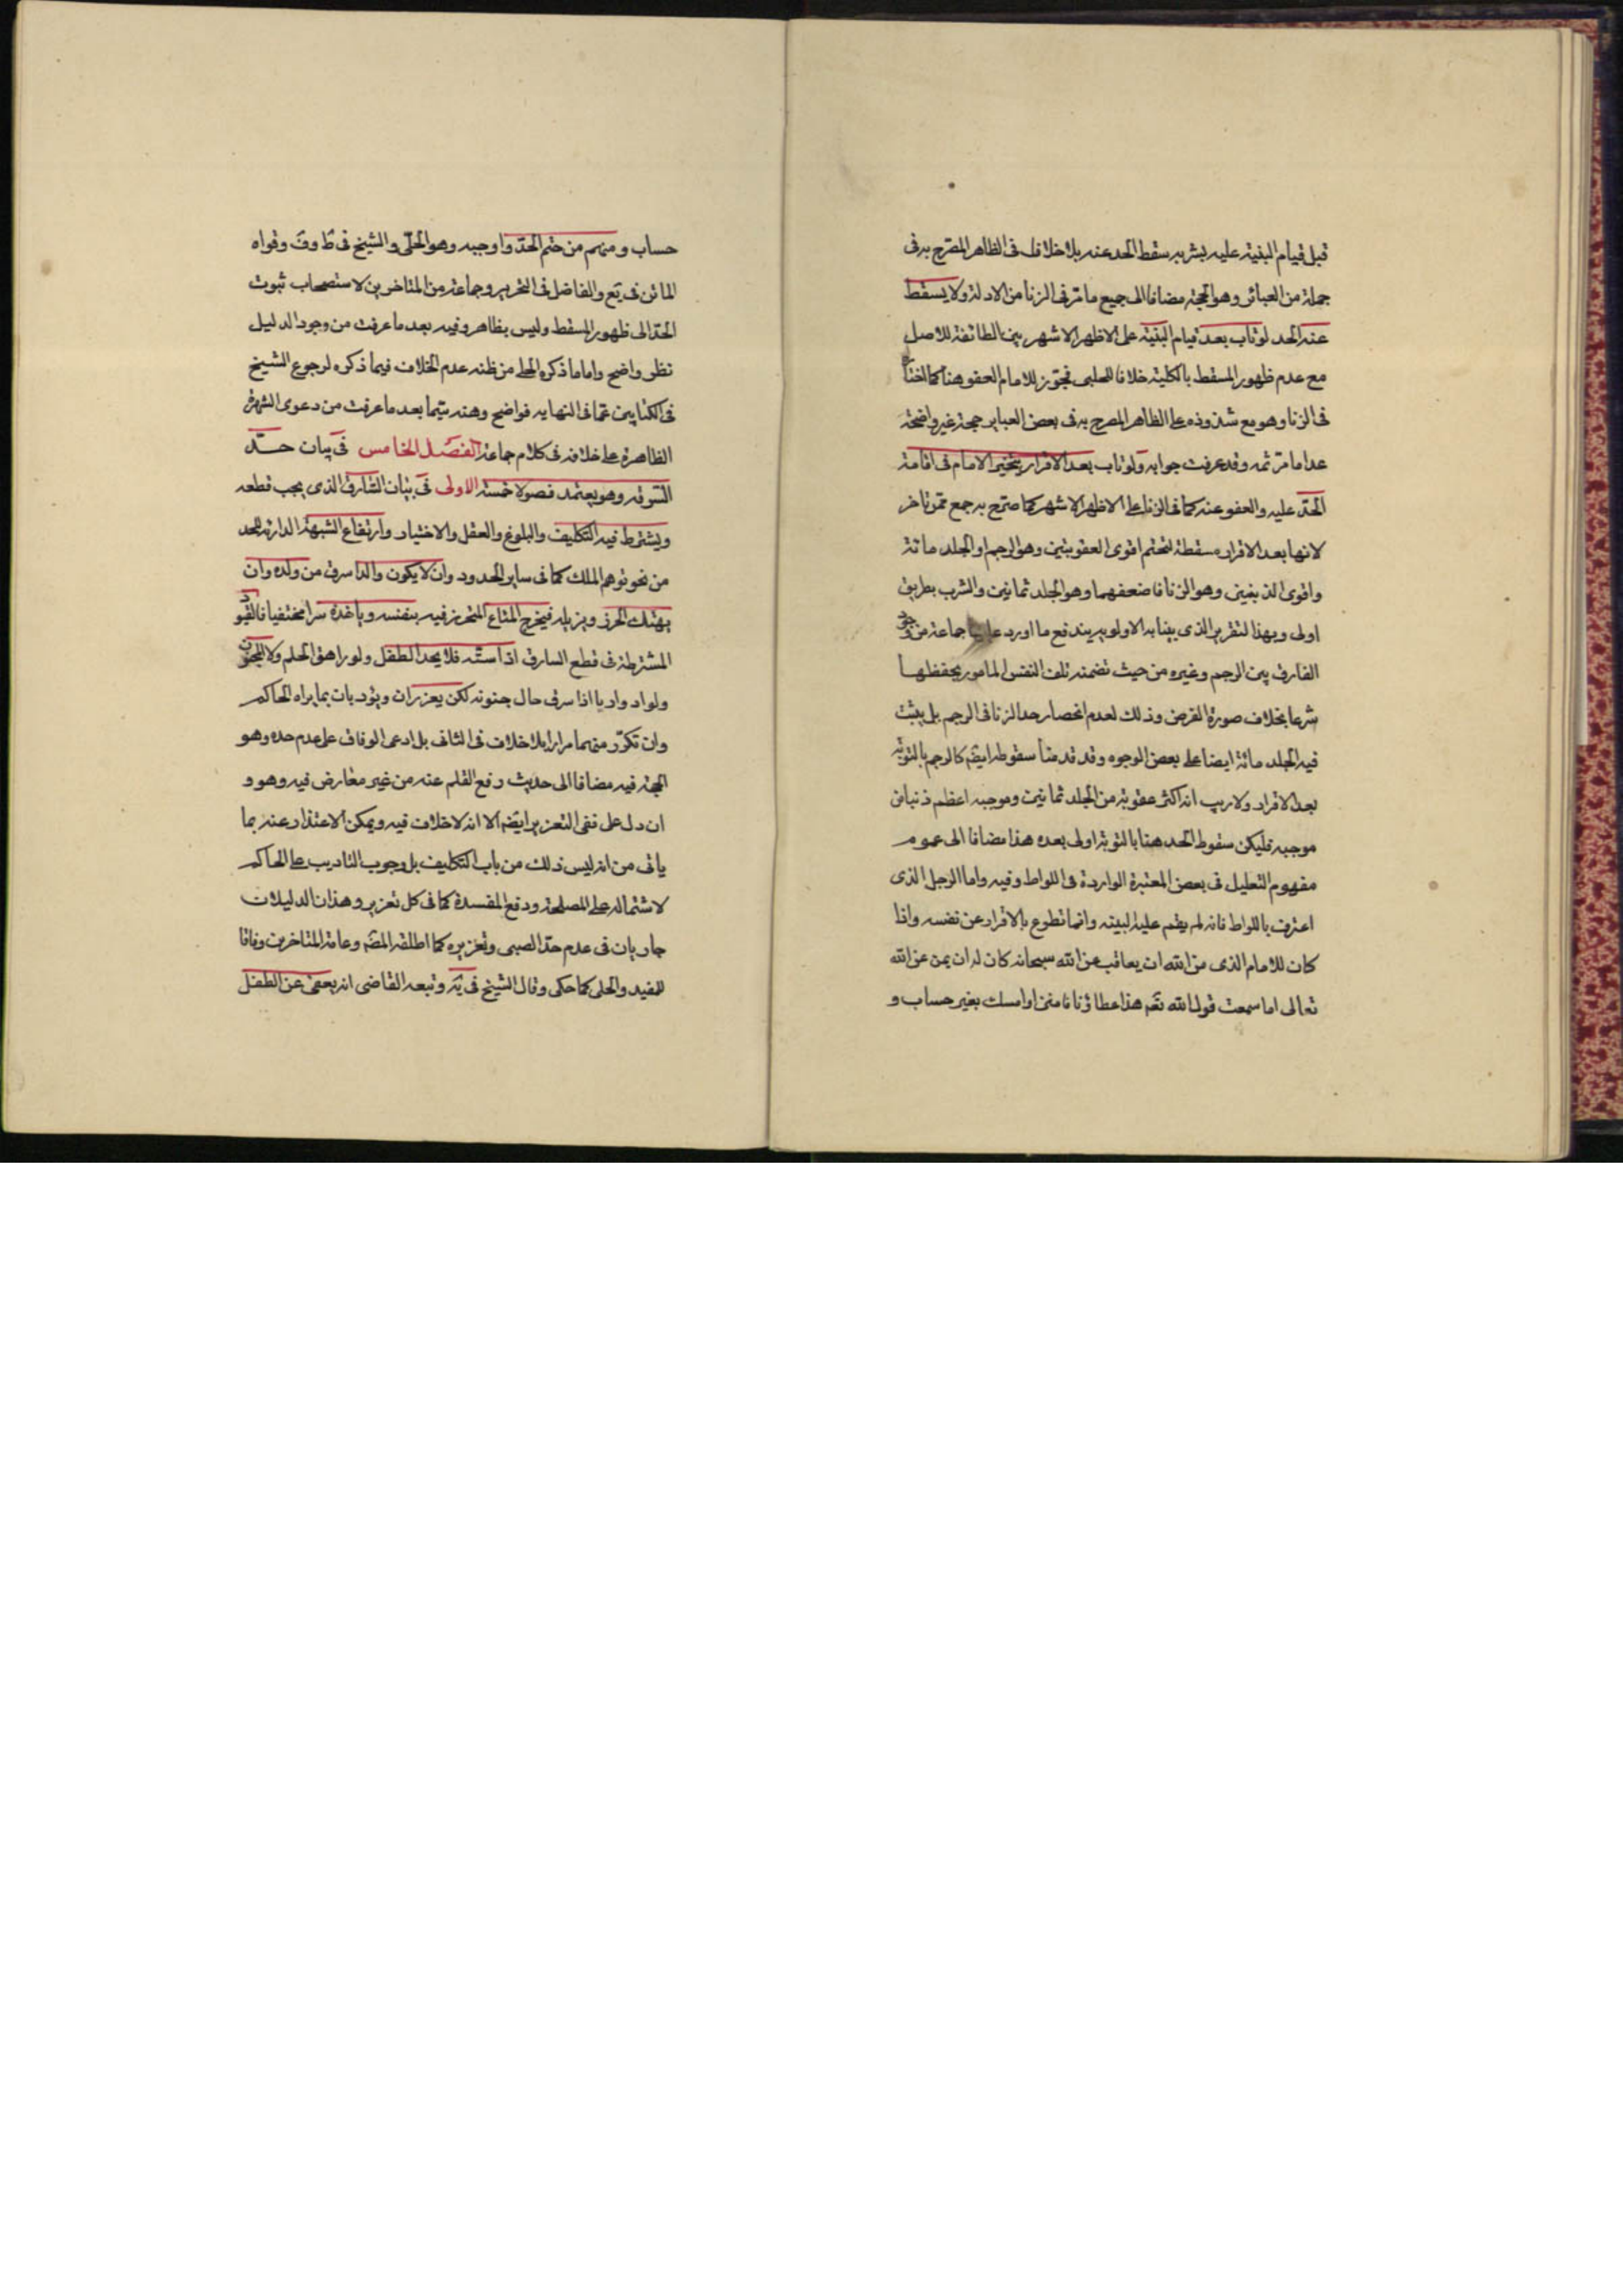 قبل قيام البينة عليه بشربه سقط الحد عنه بلا خلاف فى الظاهر المصرح به فى
جملة من العبائر وهو الحجة مضافا الى جميع ما مر فى الزنا من الادلة ولا يسقط
عنه الحد لو تاب بعد قيام البينة على الاظهر الاشهر بين الطائفة للاصل
مع عدم ظهور المسقط بالكلية خلافا للحلبى فجوز للامام العفو هنا كما اختاره
فى الزنا وهو مع شذوذه على الظاهر المصرح به فى بعض العباير حجته غير واضحة
عدا ما مر ثمه وقد عرفت جوابه ولو تاب بعد الاقرار يتخير الامام فى اقامة
الحد عليه والعفو عنه كما فى الزنا على الاظهر الاشهر كما صرح به جمع ممن تاخر
لانها بعد الاقرار مسقطة لتحتم اقوى العقوبتين وهو الرجم او الجلد مائة
واقوى الذنبين وهو الزنا فاضعفهما وهو الجلد ثمانين والشرب بطريق
اولى وبهذا لتقرير الذى بينا به الاولويه يندفع ما اورد عليها جماعة من وجود
الفارق بين الرجم وغيره من حيث تضمنه تلف النفس المامور بحفظها
شرعا بخلاف صورة الفرض وذلك لعدم انحصار حد الزنا فى الرجم بل يثبت
فيه الجلد مائة ايضا على بعض الوجوه وقد قدمنا سقوطه ايضم كالرجم بالتوبة
بعد الاقرار ولا ريب انه اكثر عقوبة من الجلد ثمانين وموجبه اعظم ذنبا من
موجبه فليكن سقوط الحد هنا بالتوبة اولى بعده هذا مضافا الى عموم
مفهوم التعليل فى بعض المعتبرة الواردة فى اللواط وفيه واما الرجل الذى
اعترف باللواط فانه لم يقم عليه البينه وانما تطوع بالاقرار عن نفسه واذا
كان للامام الذى من الله ان يعاقب عن الله سبحانه كان له ان يمن عن الله
تعالى اما سمعت قول الله تعم هذا عطاؤنا فامنن او امسك بغير حساب و
حساب ومنهم من حتم الحد واوجبه وهو الحلى والشيخ فى ط وف وقواه
الماتن فى يع والفاضل فى التحرير وجماعة من المتاخرين لاستصحاب ثبوت
الحد الى ظهور المسقط وليس بظاهر وفيه بعد ما عرفت من وجود الدليل
نظر واضح واما ما ذكره الحلى من ظنه عدم الخلاف فيما ذكره لرجوع الشيخ
فى الكتابين عما فى النهايه فواضح وهنه سيما بعد ما عرفت من دعوى الشهرة
الظاهرة على خلافه فى كلام جماعة الفصل الخامس فى بيان حد
السرقه وهو يعتمد فصولا خمسة الاولى فى بيان السارق الذى يجب قطعه
ويشترط فيه التكليف والبلوغ والعقل والاختيار وارتفاع الشبهة الدارئة للحد
من نحو توهم الملك كما فى ساير الحدود وان لا يكون والدا سرق من ولده وان
يهتك الحرز ويزيله فيخرج المتاع المتحرز فيه بنفسه وياخذه سرا مختفيا فالقيود
المشترطة فى قطع السارق اذا ستة فلا يحد الطفل ولو راهق الحلم ولا المجنون
ولو ادواريا اذا سرق حال جنونه لكن يعزران ويؤدبان بما يراه الحاكم
وان تكرر منهما مرارا بلا خلاف فى الثانى بل ادعى الوفاق على عدم حده وهو
الحجة فيه مضافا الى حديث رفع القلم عنه من غير معارض فيه وهو و
ان دل على نفى التعزير ايضم الا انه لا خلاف فيه ويمكن الاعتذار عنه بما
ياتى من انه ليس ذلك من باب التكليف بل وجوب التاديب على الحاكم
لاشتماله على المصلحة ودفع المفسدة كما فى كل تعزير وهذان الدليلان
جاريان فى عدم حد الصبى وتعزيره كما اطلقه المصم وعامة المتاخرين وفاقا
للمفيد والحلى كما حكى وقال الشيخ فى ية وتبعه القاضى انه يعفى عن الطفل